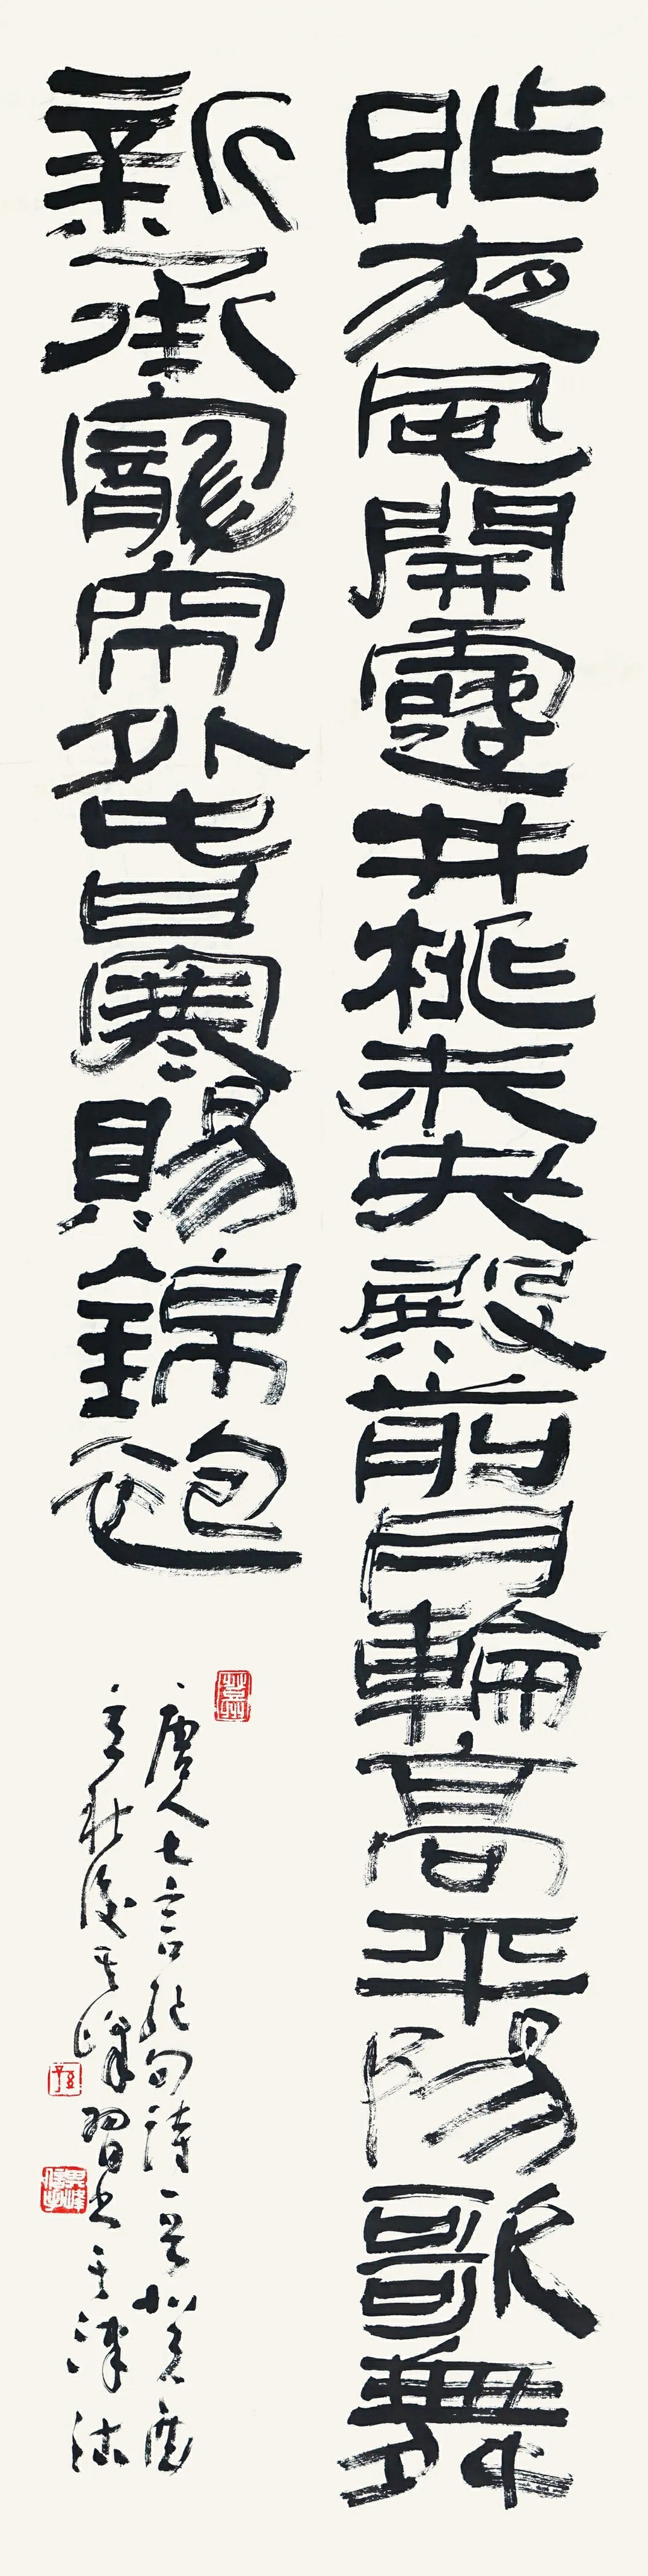 昨夜風開露井桃未央殿前月輪高平陽歌舞
新承寵帘外春寒賜錦袍
唐人七言絕句詩一首癸酉
立秋後其峰習書于津沽